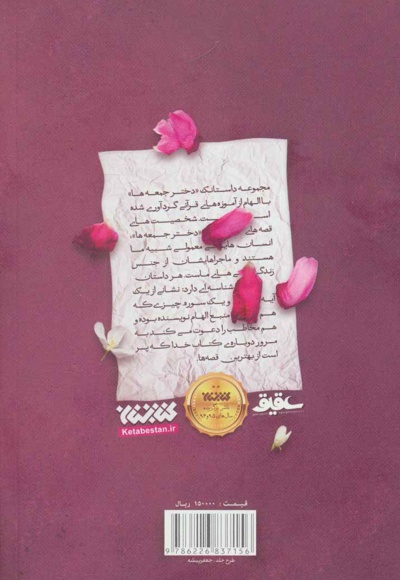 مجموعه داستانک «دختر جمعه ها»
با الهام از آموزه های قرآنی گردآوری شده
است. شخصیت های
قصه های «دختر جمعه ها»،
انسان هایی معمولی شبیه ما
هستند و ماجراهایشان از جنس
زندگی های ماست. هر داستان
شناسه ای دارد: نشانی از یک
آیه و یک سوره چیزی که
هم منبع الهام نویسنده بوده و
هم مخاطب را دعوت می کند به
مرور دوباره ی کتاب خدا که پر
است از بهترین قصه ها.
کتابستان
Ketabestan.ir
عقیق
قیمت: ۱۵۰۰۰۰ ریال
9 786226 837156
طرح جلد: جعفرپیشه